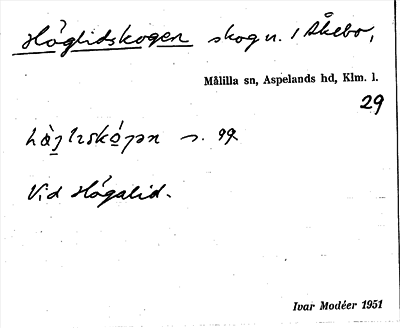 Höglidskogen skog n. i Åkebo,
Målilla sn, Aspelands hd, Klm. l.
29
s. 99
Vid Högalid.
Ivar Modéer 1951